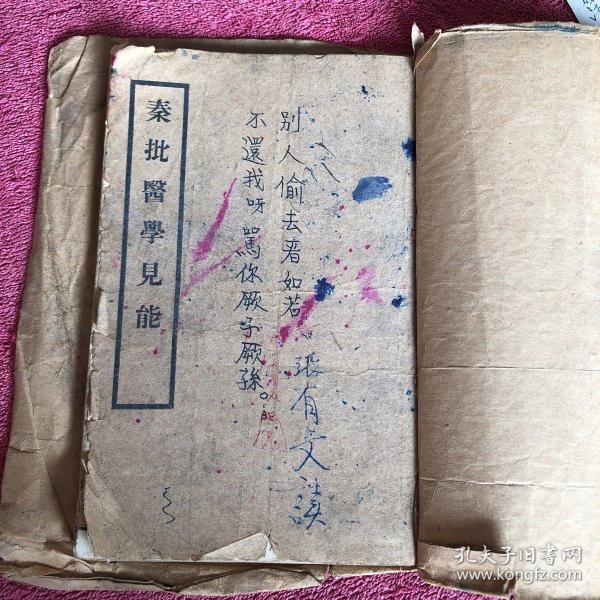 秦批醫學見能
别人偷去看如若
不還我呀罵你厥子厥孫。
張有文
孔夫子旧书网
www.kongfz.com